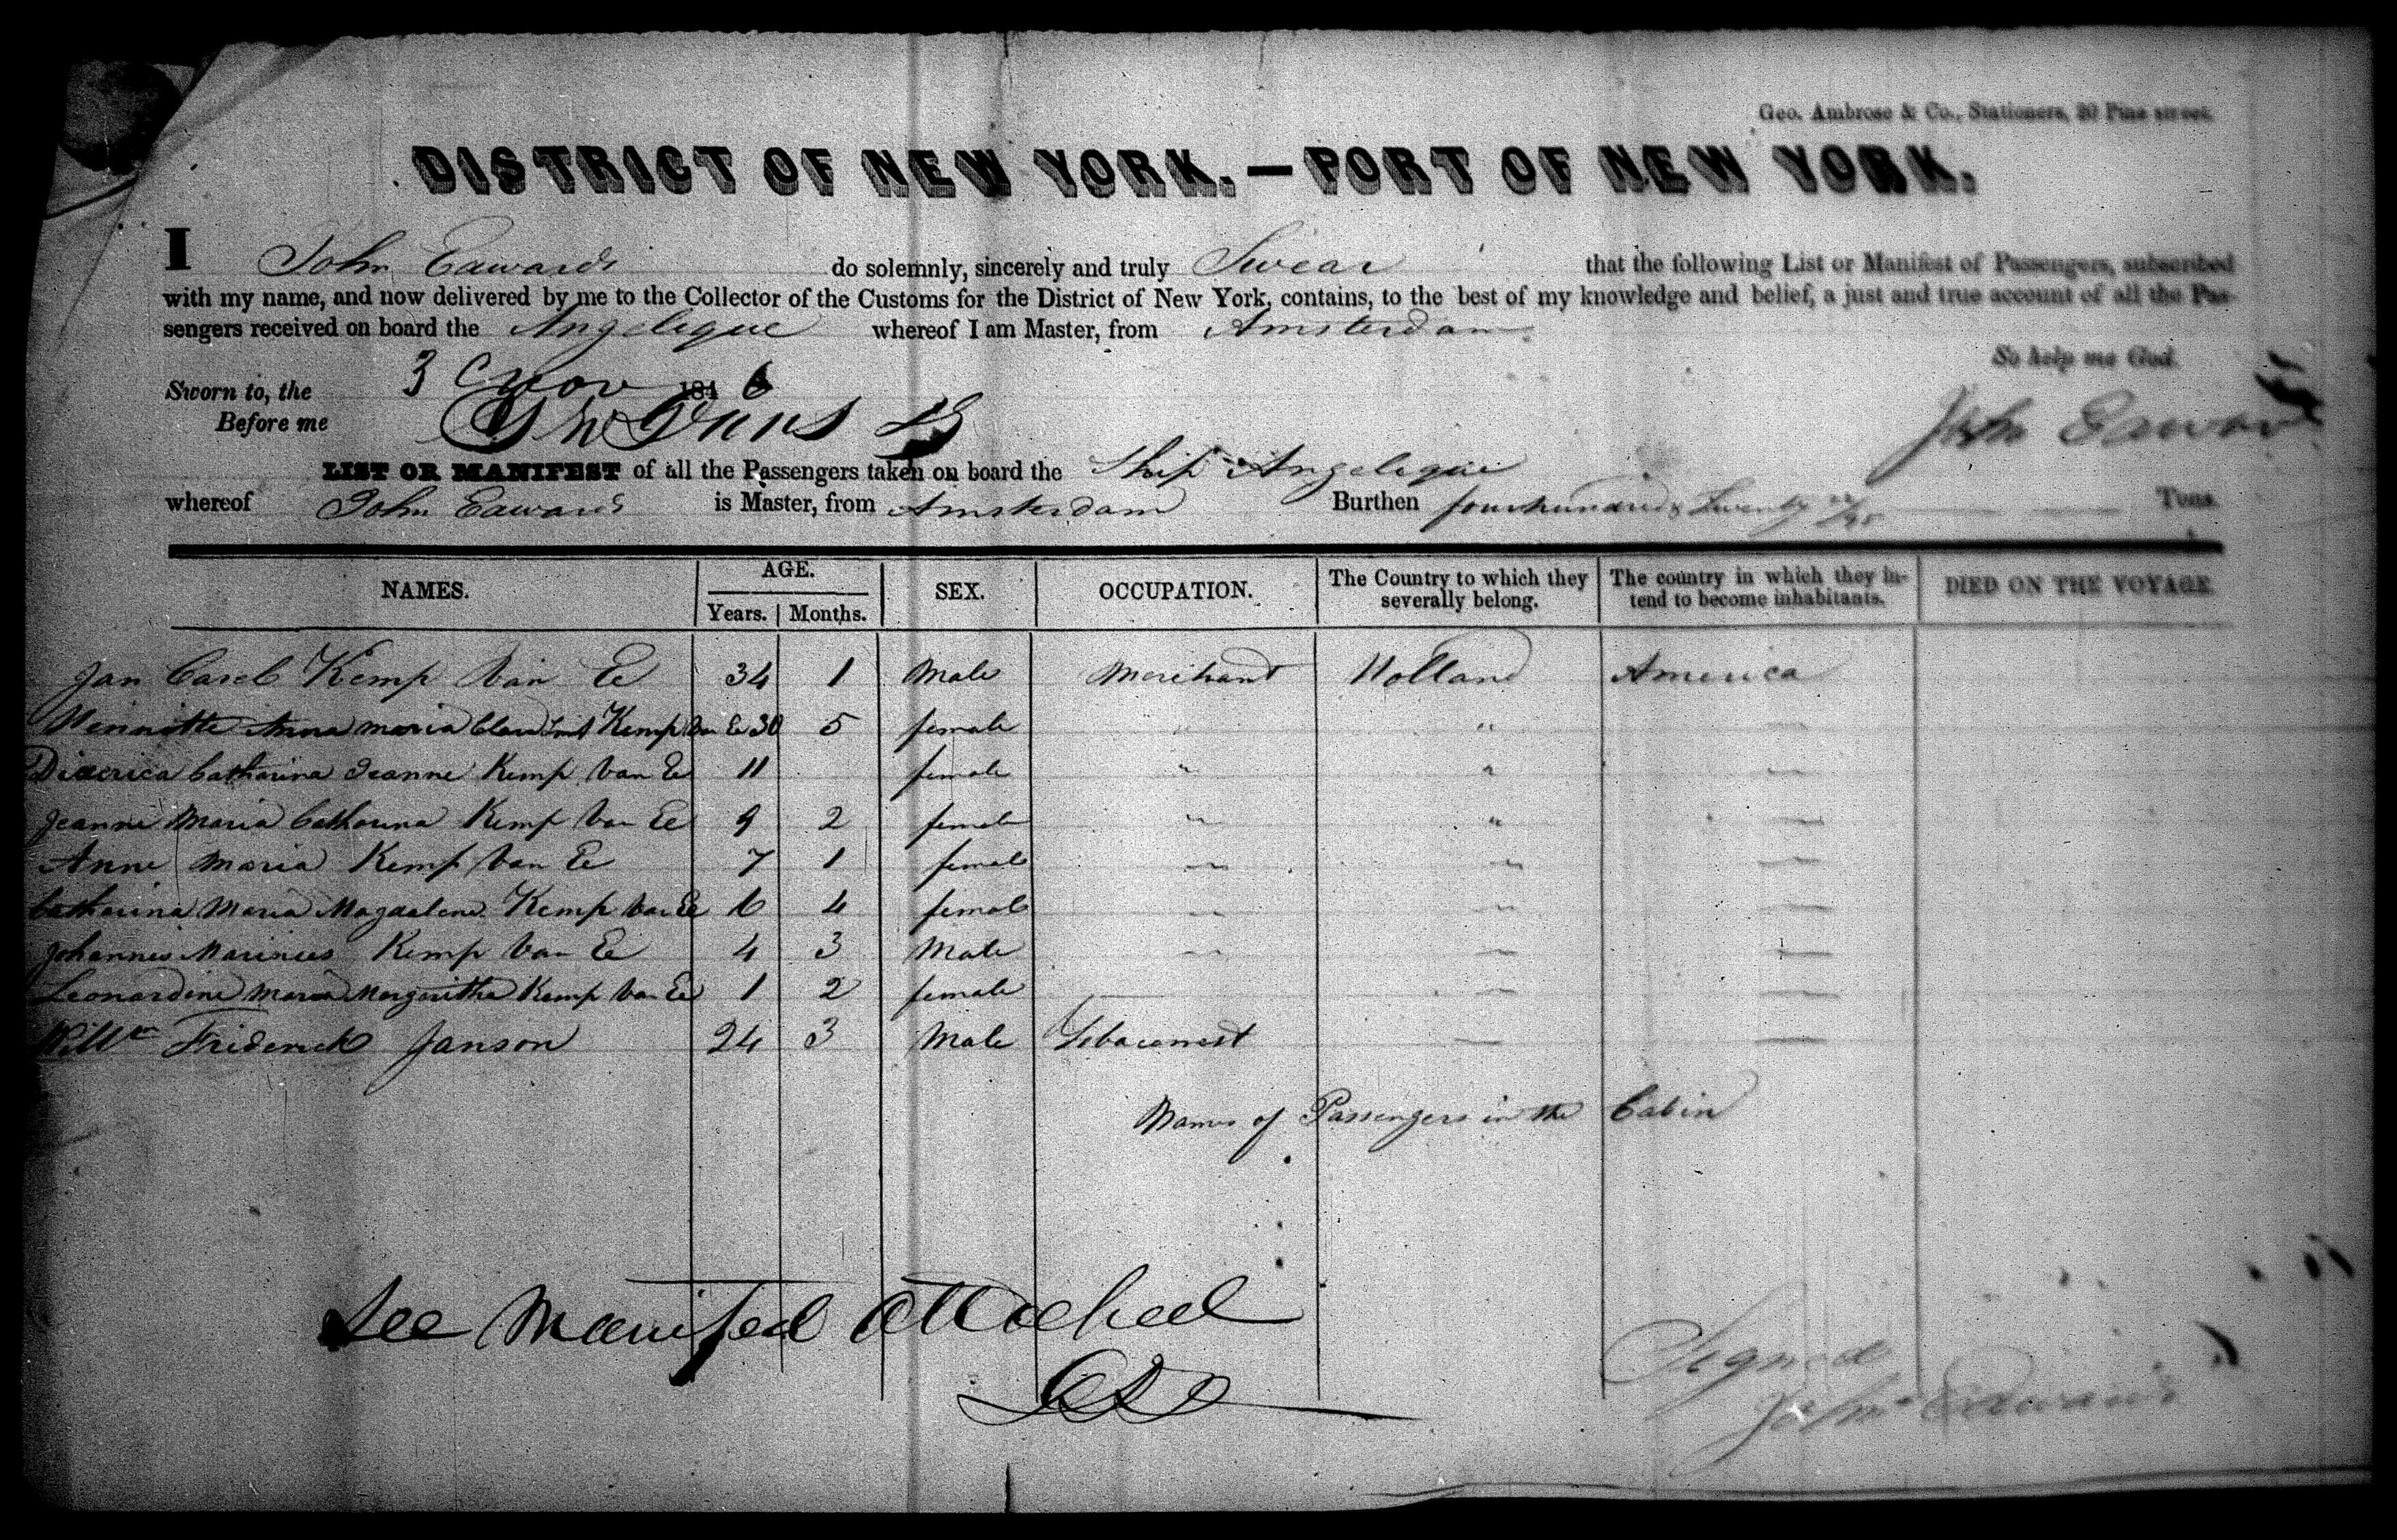 Geo. Ambrose & Co., Stationers, 30 Pine street.
DISTRICT OF NEW YORK.—PORT OF NEW YORK.
I John Edwards do solemnly, sincerely and truly Swear that the following List or Manifest of Passengers, subscribed
with my name, and now delivered by me to the Collector of the Customs for the District of New York, contains, to the best of my knowledge and belief, a just and true account of all the Pas-
sengers received on board the Angelique whereof I am Master, from Amsterdam
So help me God.
Sworn to, the 3 Nov 1846
Before me
John Edwards
LIST OR MANIFEST of all the Passengers taken on board the Ship Angelique
whereof John Edwards is Master, from Amsterdam Burthen four hundred & Twenty Tons.
NAMES. AGE. SEX. OCCUPATION. The Country to which they severally belong. The country in which they intend to become inhabitants. DIED ON THE VOYAGE
Years. Months.
Jan Carel Kemp Van Ee 34 1 Male Merchant Holland America
Henriette Anna Maria Kemp Van Ee 30 5 female " " —
Diderica Catharina Jeanne Kemp Van Ee 11 female " " —
Jeanne Maria Catharina Kemp Van Ee 9 2 female " " —
Anne Maria Kemp Van Ee 7 1 female " " —
Catharina Maria Magdalene Kemp Van Ee 6 4 female " " —
Johannes Marinus Kemp Van Ee 4 3 Male " — —
Leonardine Maria Margaritha Kemp Van Ee 1 2 female — — —
Willm Friderick Janson 24 3 Male — —
Names of Passengers in the Cabin
See Manifest attached
Signed
John Edwards